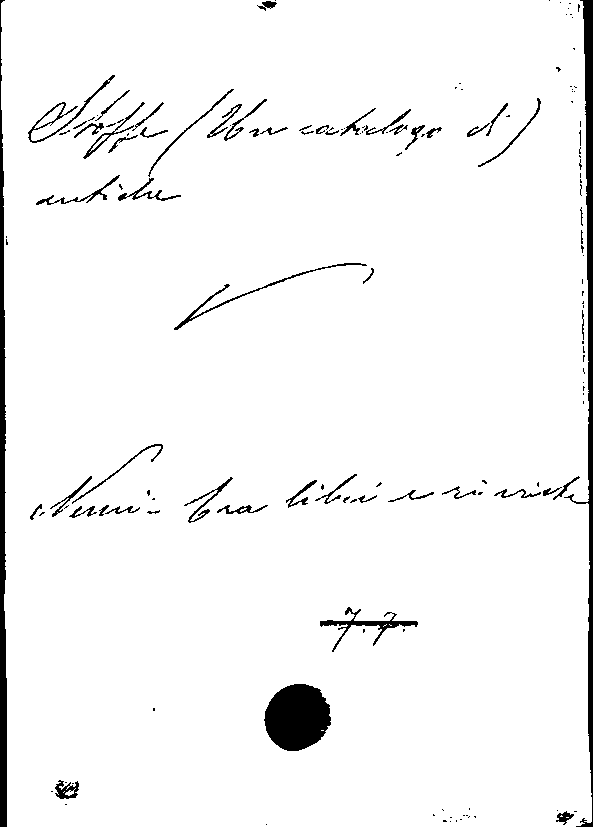 Stoffe (Un catalogo di)
antiche
Nemi - Tra libri e riviste
7. 7.